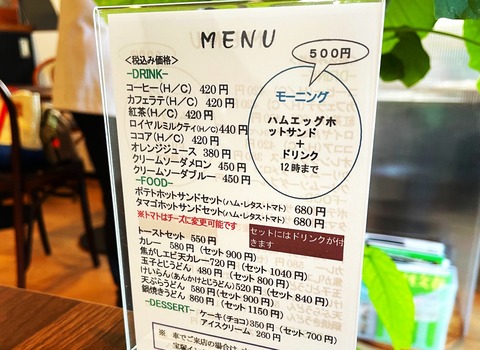 MENU
<税込み価格>
-DRINK-
コーヒー(H/C) 420円
カフェラテ(H/C) 420円
紅茶(H/C) 420円
ロイヤルミルクティ(H/C)440円
ココア(H/C) 420円
オレンジジュース 380円
クリームソーダメロン 450円
クリームソーダブルー 450円
500円
モーニング
ハムエッグホ
ットサンド
+
ドリンク
12時まで
-FOOD-
ポテトホットサンドセット(ハム・レタス・トマト) 680円
タマゴホットサンドセット(ハム・レタス・トマト) 680円
※トマトはチーズに変更可能です
セットにはドリンクが付
きます
トーストセット 550円
カレー 580円(セット900円)
焦がしエビ天カレー720円(セット1040円)
玉子とじうどん 480円(セット800円)
けいらん(あんかけとじうどん)520円(セット840円)
天ぷらうどん 580円(セット900円)
鍋焼きうどん 860円(セット1150円)
-DESSERT-
ケーキ(チョコ)350円(セット700円)
アイスクリーム 260円
※ 車でご来店の場合は